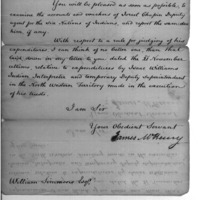 You will be pleased as soon as possible, to
examine the accounts and vouchers of Israel Chapin Deputy
agent for the six Nations of Indians, and report the
tion, if any.
With respect to a rule for judging of his
expenditures I can think of no better one, than that
laid down in my letter to you dated the 21 November
ultimo, relative to expenditures by Isaac Williams
Indian Interpreter and temporary Deputy Superintendant
in the North Western Territory made in the execution
of his trusts.
I am Sir
Your Obedient Servant
James McHenry
William Simmons Esqr.